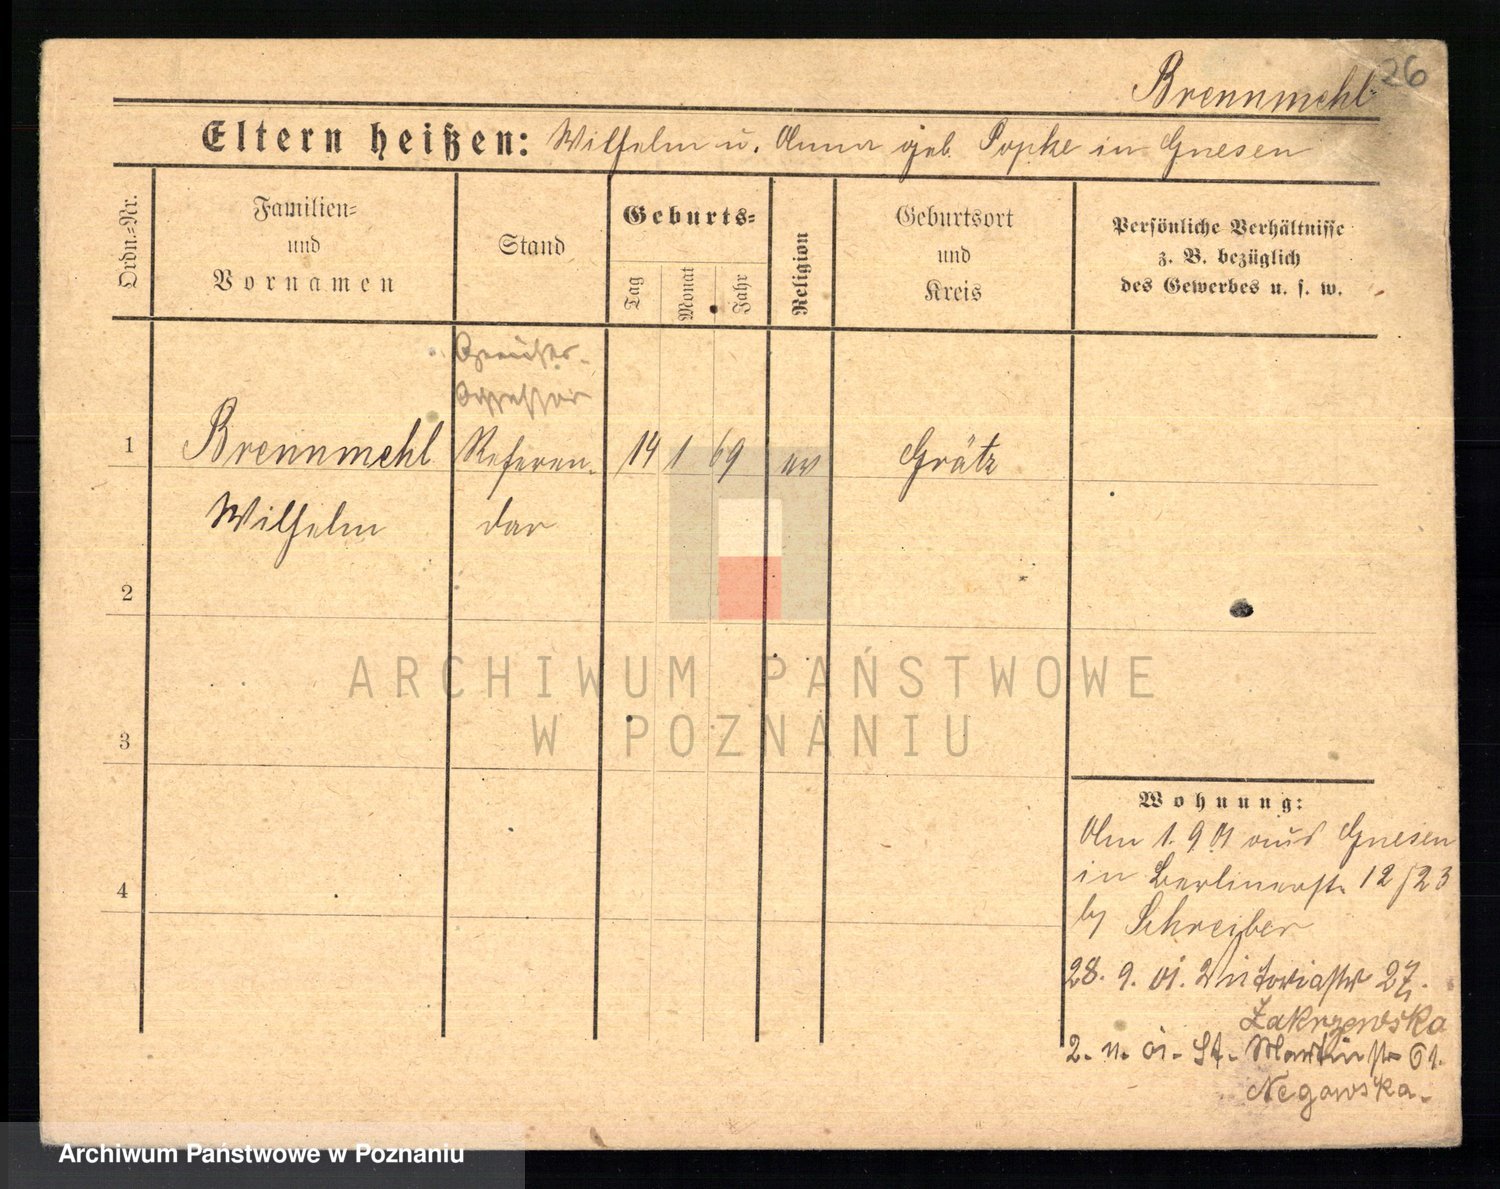 26
Brennmehl
Eltern heißen: Wilhelm u. Anna geb. Popke in Gnesen
Ordn.-Nr.
Familien-
und
Vornamen
Stand
Geburts-
Tag
Monat
Jahr
Religion
Geburtsort
und
Kreis
Persönliche Verhältnisse
z. B. bezüglich
des Gewerbes u. s. w.
Gerichts-
Assessor
1 Brennmehl Referen- 14 1 69 ev Grätz
Wilhelm dar
2
3
4
ARCHIWUM PAŃSTWOWE
W POZNANIU
Wohnung:
Am 1. 9 01 aus Gnesen
in Berlinerstr. 12/23
by Schreiber
28. 9. 01. Viktoriastr 27.
Zakrzewska
2. 11. 01. St. Martinstr 61.
Negowska.
Archiwum Państwowe w Poznaniu